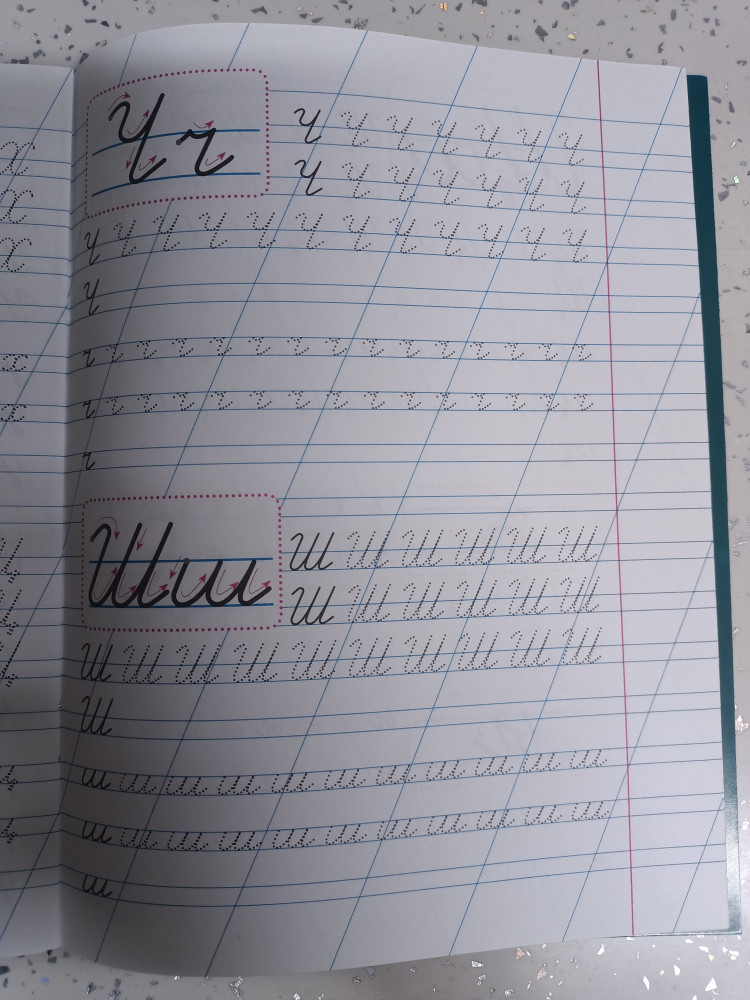 Ч ч
Ч Ч Ч Ч Ч Ч Ч
Ч Ч Ч Ч Ч Ч Ч
Ч Ч Ч Ч Ч Ч Ч Ч Ч Ч Ч Ч
Ч
ч ч ч ч ч ч ч ч ч ч ч ч ч ч ч
ч ч ч ч ч ч ч ч ч ч ч ч ч ч ч
ч
Ш ш
Ш Ш Ш Ш Ш Ш
Ш Ш Ш Ш Ш Ш
Ш Ш Ш Ш Ш Ш Ш Ш Ш Ш
Ш
ш ш ш ш ш ш ш ш ш ш ш
ш ш ш ш ш ш ш ш ш ш ш
ш